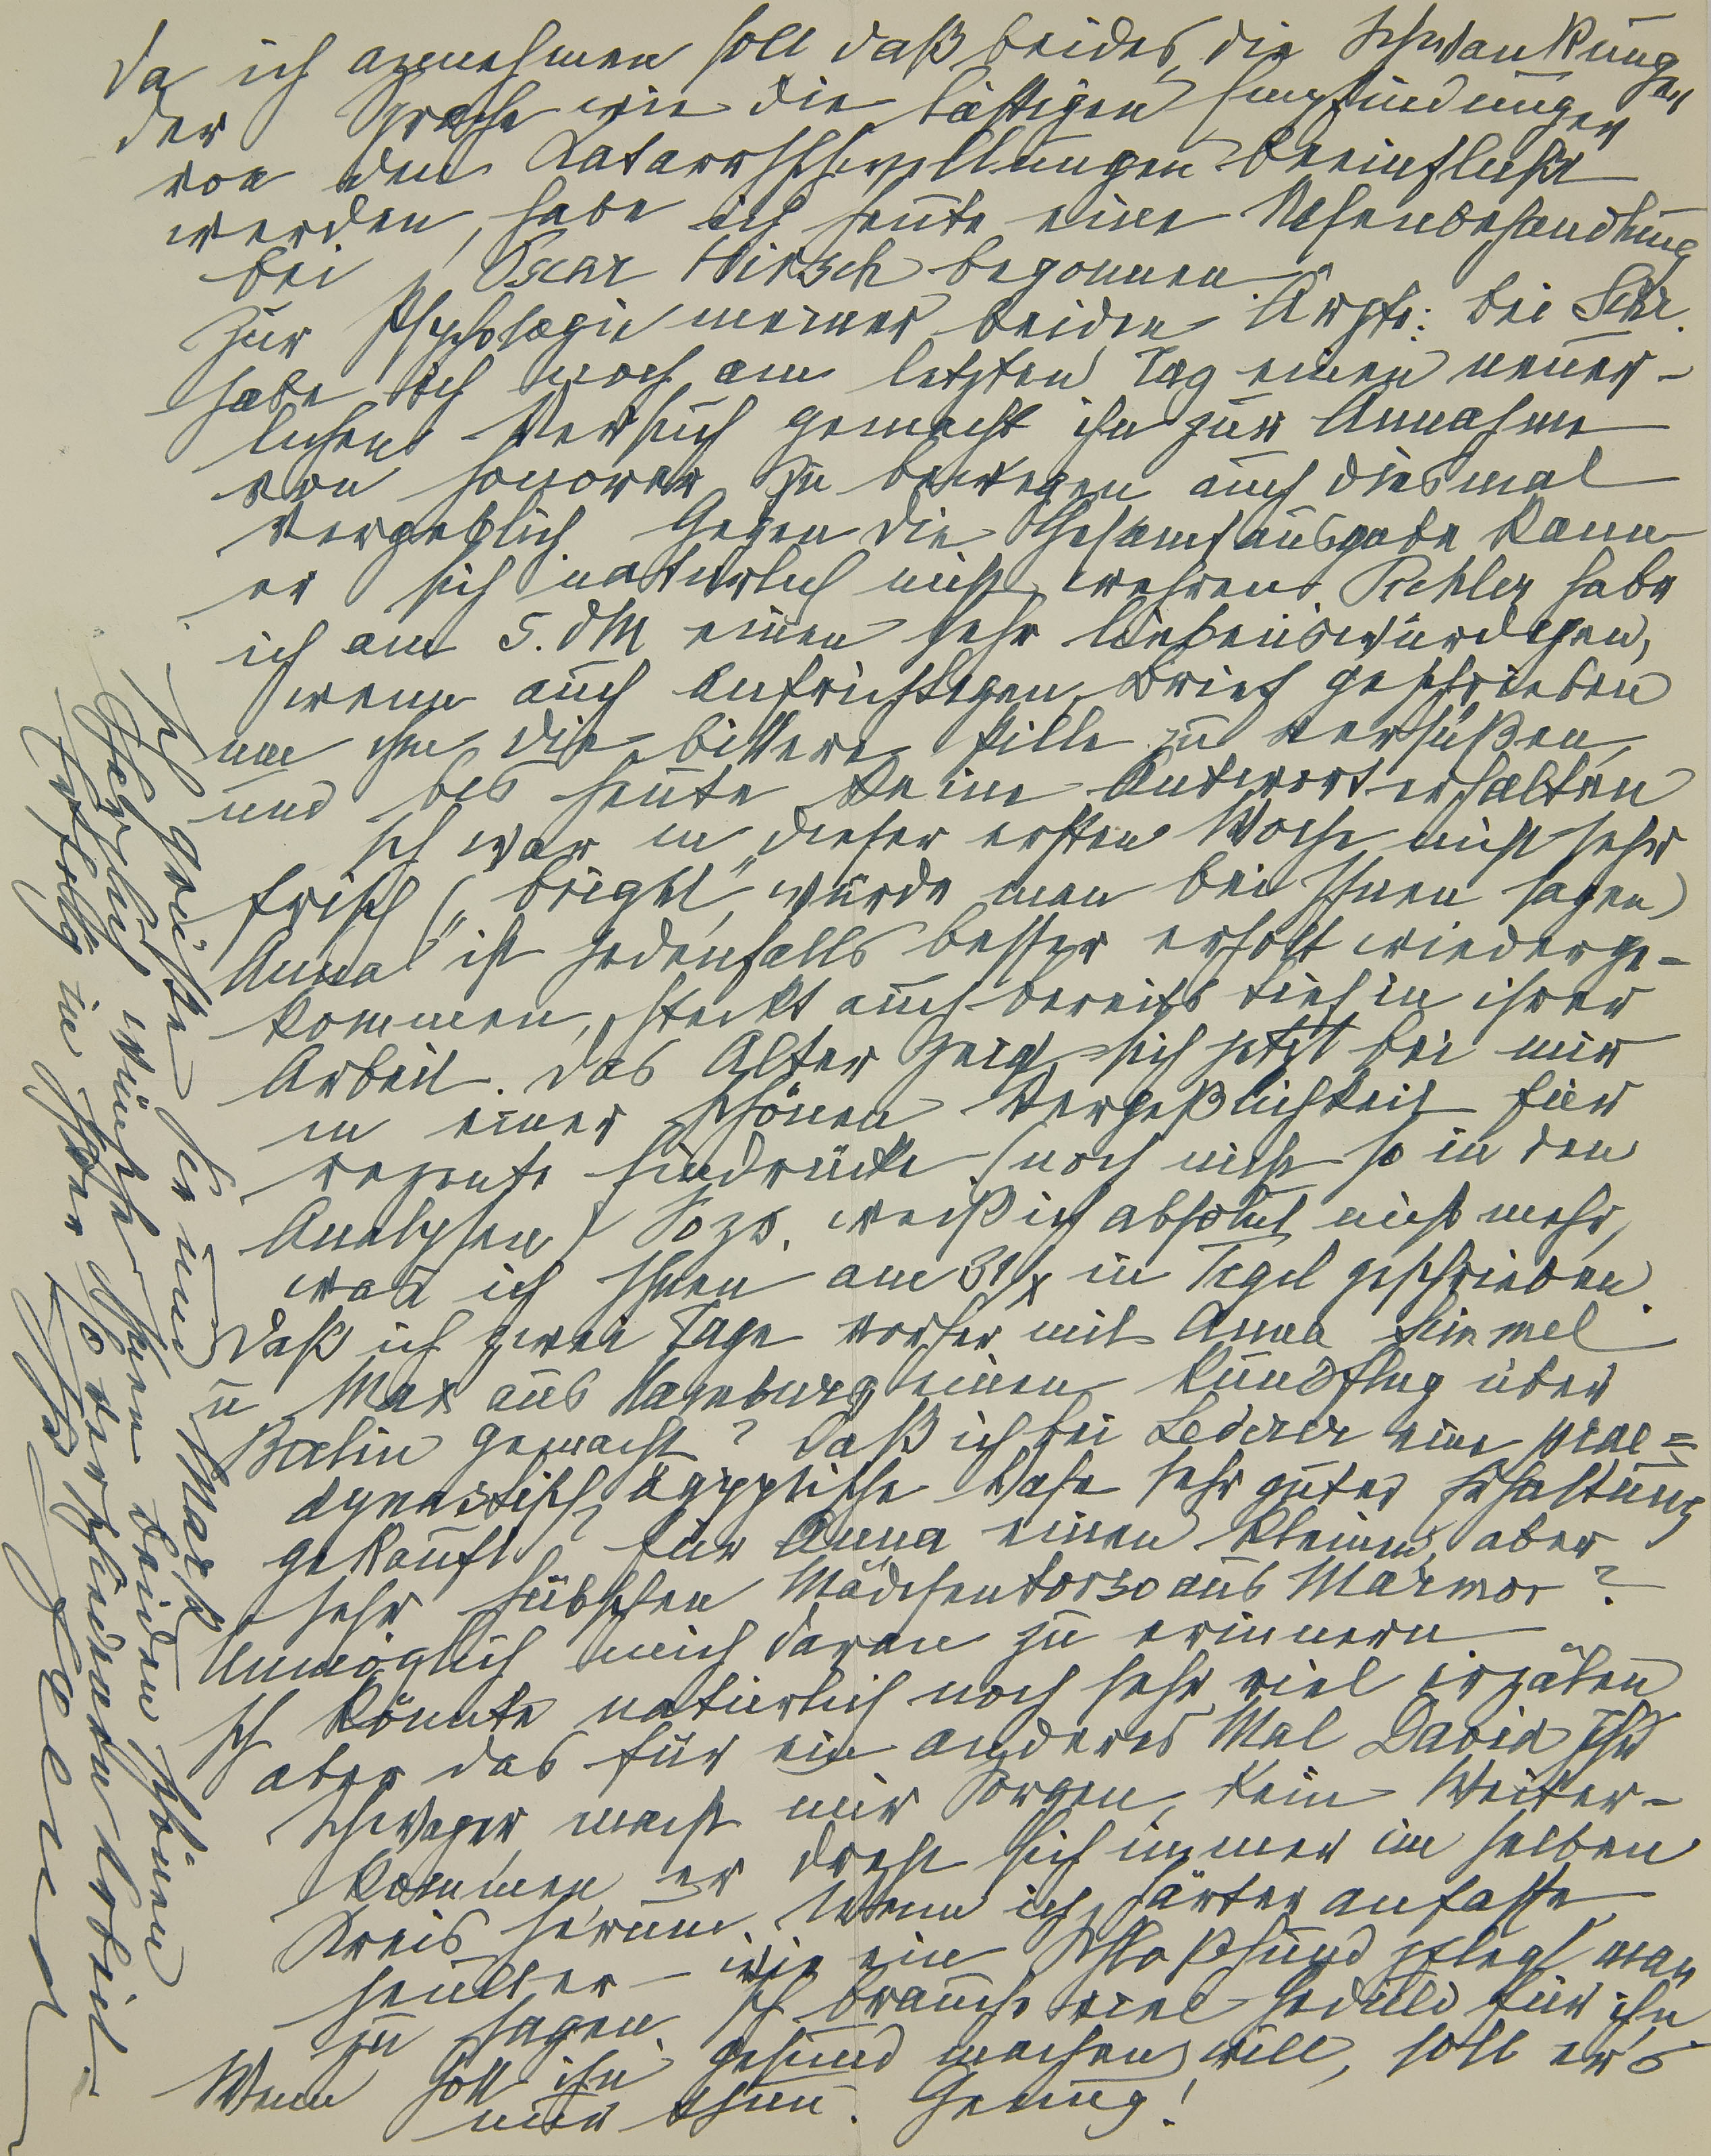 Da ich annehmen soll daß beides, die Schwankungen
der Sprache wie die lästigen Empfindungen
von den Katarrhschwellungen beeinflußt
werden, habe ich heute eine Nasenbehandlung
bei Oscar Hirsch begonnen.
Zur Psychologie meiner beiden Ärzte: bei Schr.
habe ich noch am letzten Tag einen neuer-
lichen Versuch gemacht ihn zur Annahme
von Honorar zu bewegen auch diesmal
vergeblich. Gegen die Gesamtausgabe kann
er sich natürlich nicht wehren. Pichler habe
ich am 5. dM einen sehr liebenswürdigen,
wenn auch aufrichtigen Brief geschrieben
um ihm die bittere Pille zu versüßen,
und bis heute keine Antwort erhalten
Ich war in dieser ersten Woche nicht sehr
frisch („bright“ würde man bei Ihnen sagen)
Anna ist jedenfalls besser erholt wiederge-
kommen, steckt auch bereits tief in ihrer
Arbeit. Das Alter zeigt sich jetzt bei mir
in einer schönen Vergeßlichkeit für
rezente Eindrücke (noch nicht so in den
Analysen) So zB. weiß ich absolut nicht mehr,
was ich Ihnen am 31/X in Tegel geschrieben.
Daß ich zwei Tage vorher mit Anna Simmel
u Max aus Hamburg einen Rundflug über
Berlin gemacht? Daß ich bei Lederer eine prae=
dynastisch ägyptische Vase sehr guter Erhaltung
gekauft? für Anna einen kleinen, aber
sehr hübschen Mädchentorso aus Marmor?
Unmöglich mich daran zu erinnern
Ich könnte natürlich noch sehr viel erzälen
aber das für ein anderes Mal David Ihr
Schwager, macht mir Sorgen, kein Weiter-
kommen, er dreht sich immer im selben
Kreis herum. Wenn ich härter anfasse
heult er – wie ein Schloßhund pflegt man
zu sagen. Ich brauche viel Geduld für ihn
Wenn Gott ihn gesund machen will, soll er's
nur thun. Genug!
Ich grüße Sie und Mark
herzlich, wünsche Ihnen beiden schönen
Erfolg in Ihrer
Ihr Freud